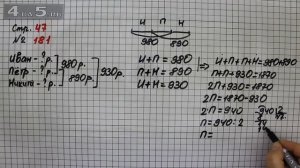 4 на 5.ru
Стр. 47
№ 181
Иван - ? р.
Петр - ? р.
Никита - ? р.
980 р.
890 р.
930 р.
И П Н
980 890
И + П = 980
П + Н = 890
И + Н = 930
И + П + П + Н = 980 + 890
И + П + П + Н = 1870
2П + 930 = 1870
2П = 1870 - 930
2П = 940
П = 940 : 2
П =
940 2